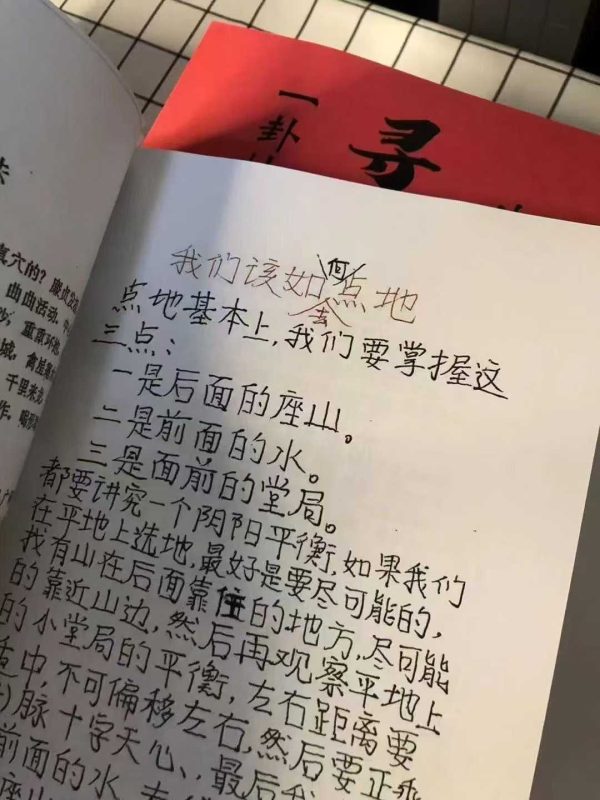 一卦
寻
真穴的？廉贞
曲曲活动，中
重重环抱
城，禽星
千里来
作，
我们该如何去点地
点地基本上，我们要掌握这
三点：
一是后面的座山。
二是前面的水。
三是面前的堂局。
都要讲究一个阴阳平衡，如果我们
在平地上选地，最好是要尽可能的，
找有山在后面靠住的地方，尽可能
的靠近山边，然后再观察平地上
的小堂局的平衡，左右距离要
适中，不可偏移左右，然后要正乘
脉十字天心、最后我
前面的水
座山